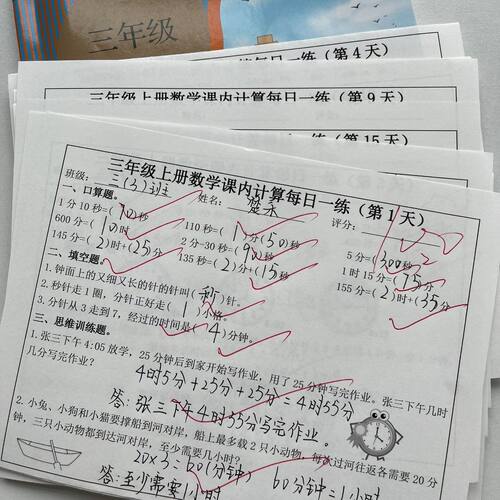 三年级
每日一练（第 4 天）
三年级上册数学课内计算每日一练（第 9 天）
一练（第 15 天）
三年级上册数学课内计算每日一练（第 1 天）
班级：三(3)班 姓名： 评分：
一、口算题。
1 分 10 秒=（70）秒 110 秒=（1）分（50）秒 5 分=（300）秒
600 分=（10）时 2 分-30 秒=（90）秒 1 时 15 分=（75）分
145 分=（2）时+（25）分 135 秒=（2）分+（15）秒 155 分=（2）时+（35）分
二、填空题。
1. 钟面上的又细又长的针的针叫（秒）针。
2. 秒针走 1 圈，分针正好走（1）小格。
3. 分针从 3 走到 7，经过的时间是（4）分钟。
三、思维训练题。
1. 张三下午 4:05 放学，25 分钟后到家开始写作业，用了 25 分钟写完作业。张三下午几时
几分写完作业？
4时5分+25分+25分=4时55分
答：张三下午4时55分写完作业。
2. 小兔、小狗和小猫要撑船到河对岸，船上最多载 2 只小动物，每次过河往返各需要 20 分
钟，三只小动物都到达河对岸，至少需要几小时？
20×3=60(分钟) 60分钟=1小时
答：至少需要1小时